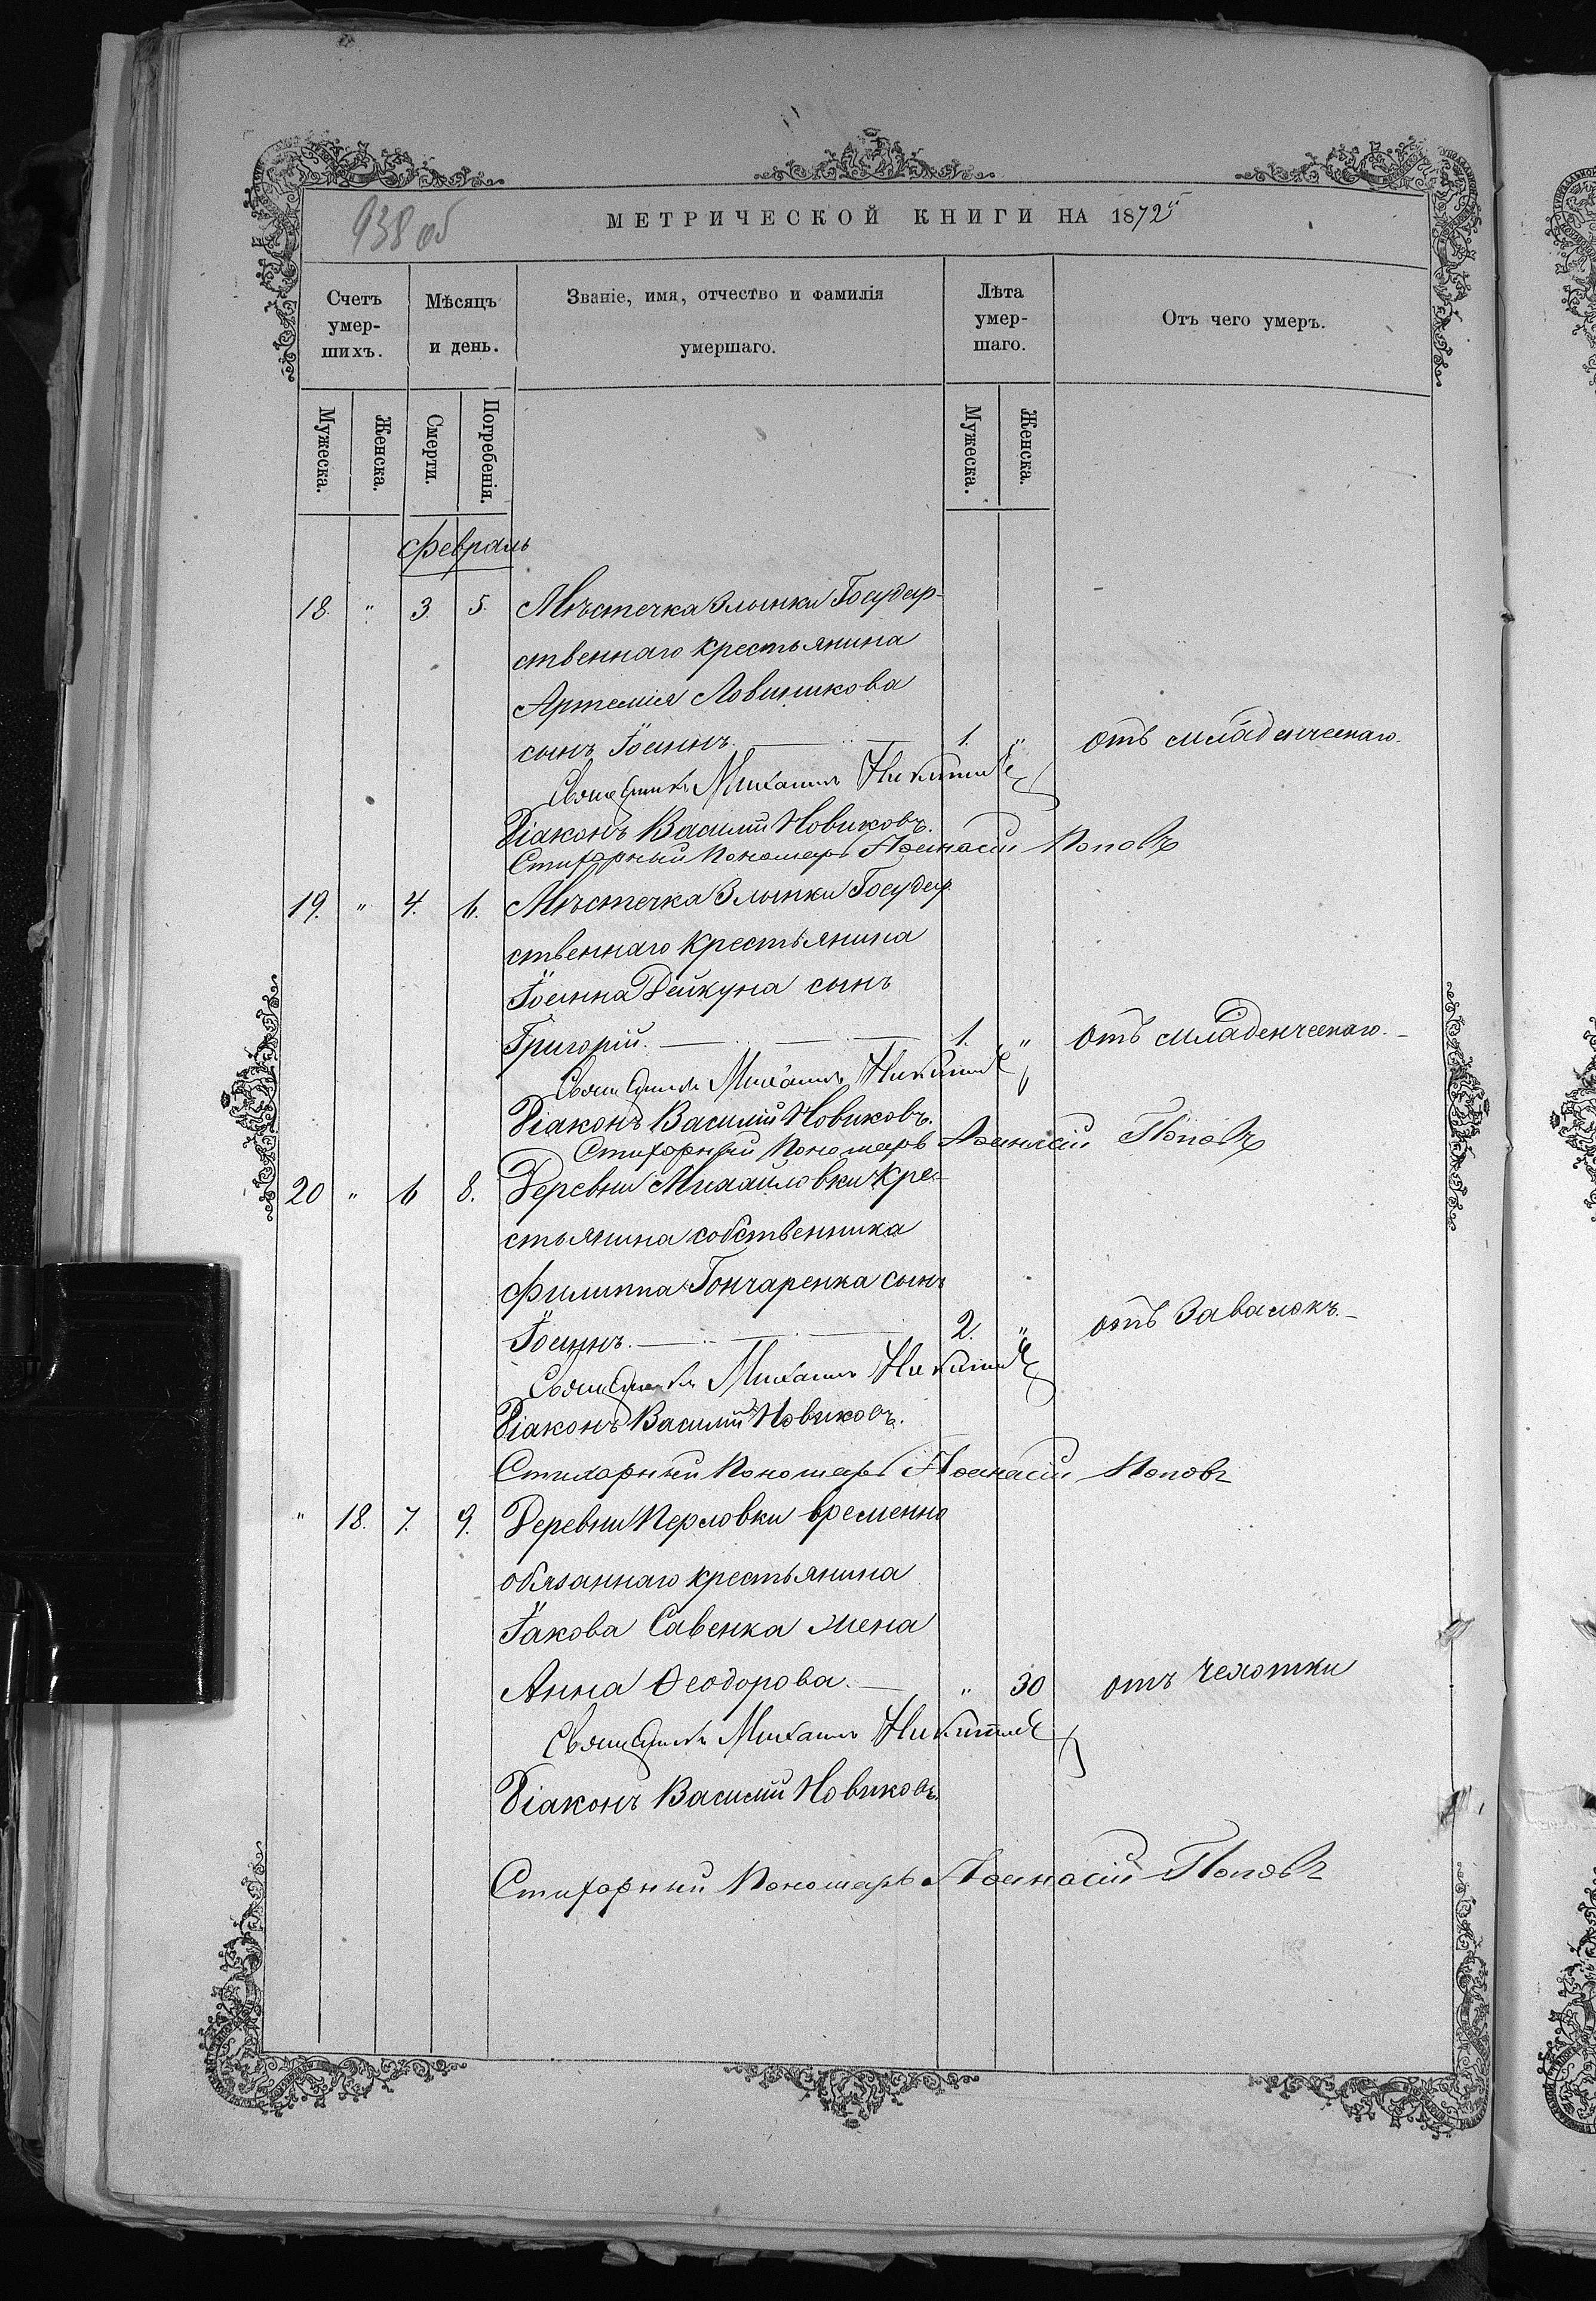 938 об
МЕТРИЧЕСКОЙ КНИГИ НА 1872й
Счетъ умер-шихъ.
Мѣсяцъ и день.
Званіе, имя, отчество и фамилія умершаго.
Лѣта умер-шаго.
Отъ чего умеръ.
Мужеска.
Женска.
Смерти.
Погребенія.
Мужеска.
Женска.
Февраль
18. " 3. 5. Мѣстечка Злынки Государ-
ственнаго крестьянина
Артемія Ловщикова
сынъ Іоаннъ. 1. " отъ младенческаго.
Священникъ Михаилъ
Діаконъ Василій Новиковъ.
Стихарный Пономарь Аѳанасій Поповъ
19. " 4. 6. Мѣстечка Злынки Государ
ственнаго крестьянина
Іоанна Дейкуна сынъ
Григорій. 1. " отъ младенческаго.
Священникъ Михаилъ
Діаконъ Василій Новиковъ.
Стихарный Пономарь Аѳанасій Поповъ
20 " 6 8. Деревни Михайловки кре-
стьянина собственника
Филиппа Гончаренка сынъ
Іоаннъ. 2. " отъ Завалокъ.
Священникъ Михаилъ
Діаконъ Василій Новиковъ.
Стихарный Пономарь Аѳанасій Поповъ
" 18. 7. 9. Деревни Перловки временно
обязаннаго крестьянина
Іакова Савенка жена
Анна Ѳеодорова. " 30 отъ чехотки
Священникъ Михаилъ
Діаконъ Василій Новиковъ.
Стихарный Пономарь Аѳанасій Поповъ